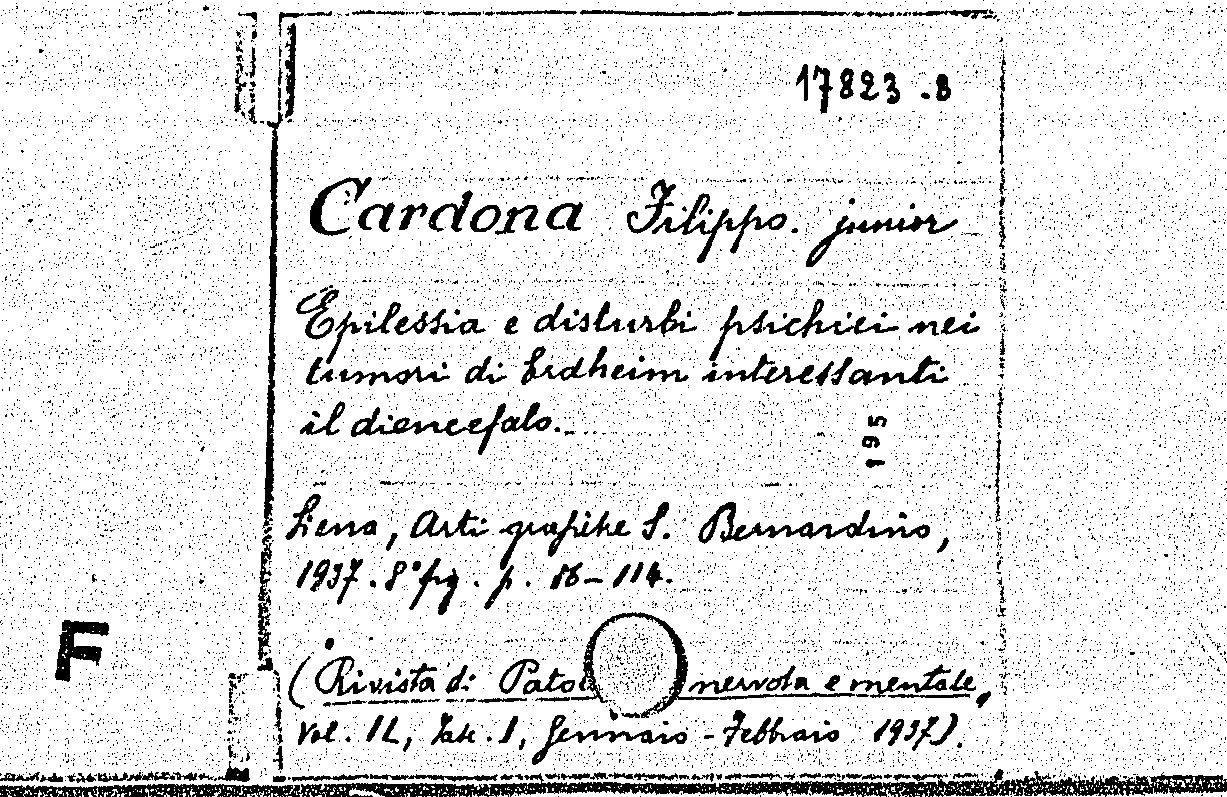 17823.B
Cardona Filippo. junior
Epilessia e disturbi psichici nei
tumori di Erdheim interessanti
il diencefalo.
195
Siena, Arti grafiche S. Bernardino,
1937. 8° fig. p. 86-114.
F
(Rivista di Pato nervosa e mentale,
Vol. IL, Fasc. I, Gennaio-Febbraio 1937).